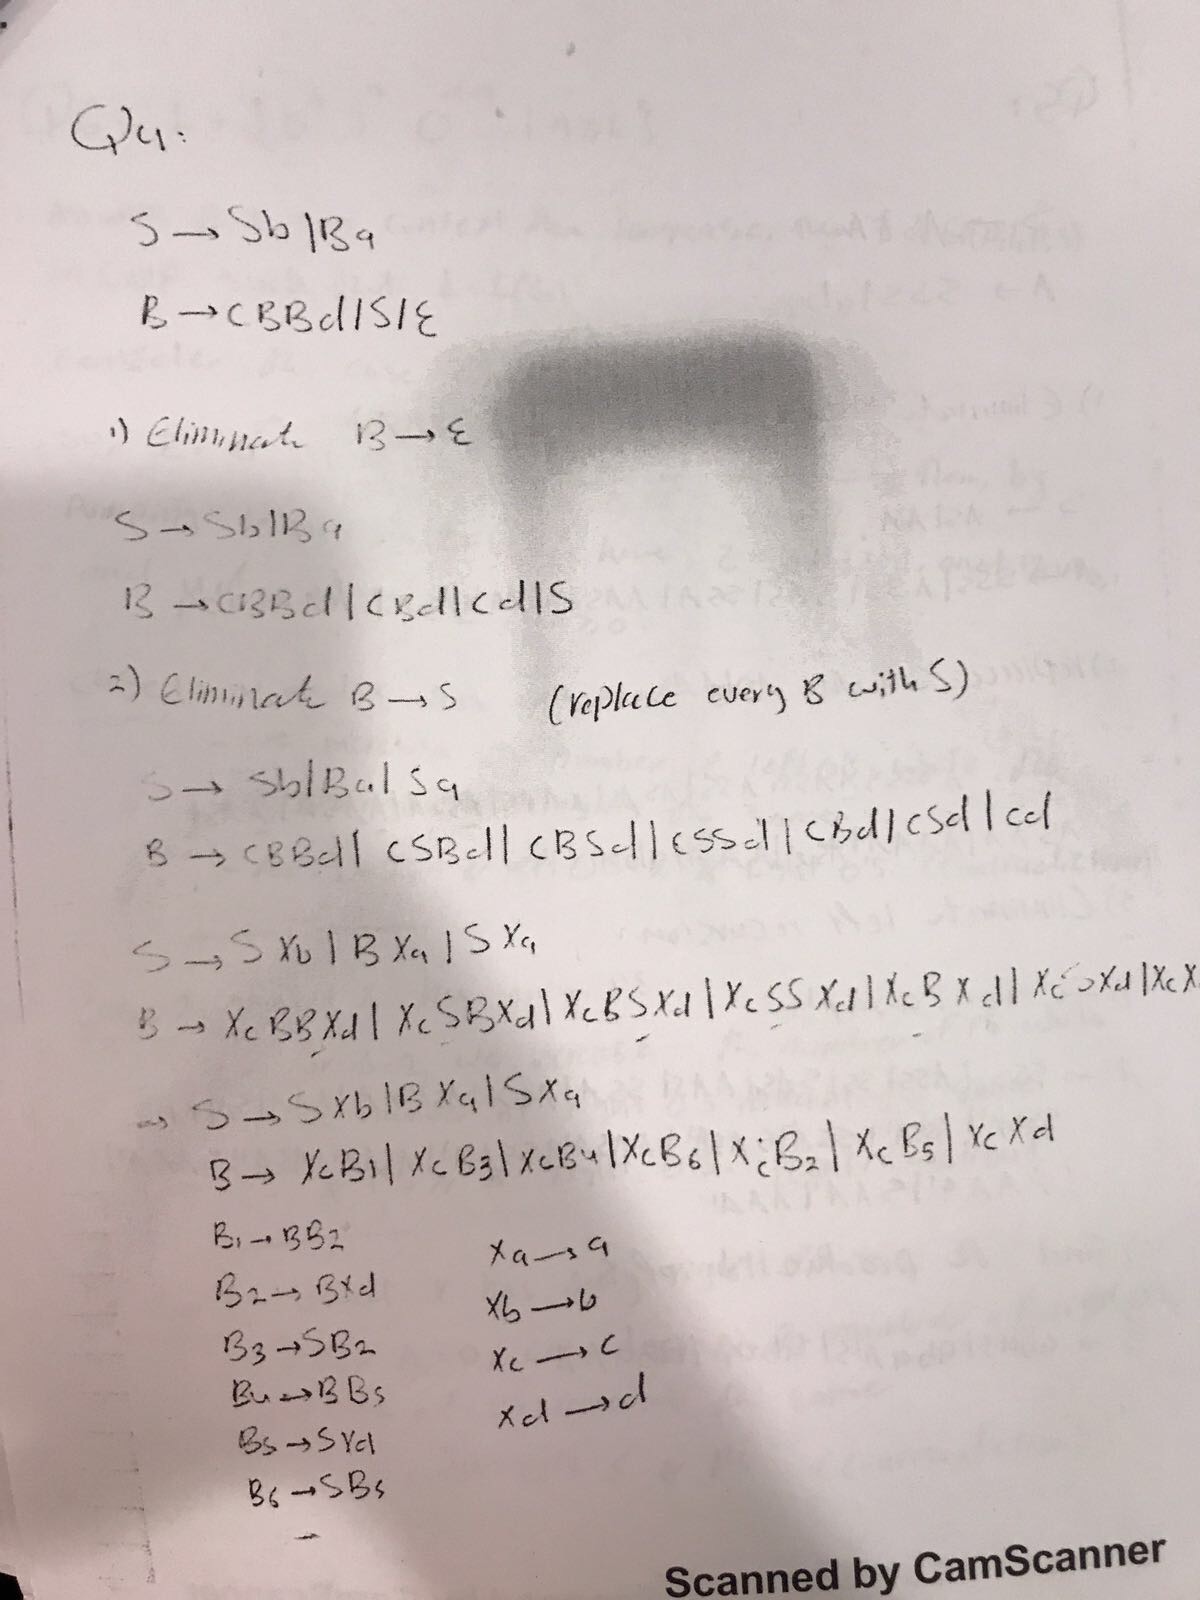 Q4:
S → Sb | Ba
B → CBBd | S | ε
1) Eliminate B → ε
S → Sb | Ba
B → CBBd | CBd | Cd | S
2) Eliminate B → S (replace every B with S)
S → Sb | Ba | Sa
B → CBBd | CSBd | CBSd | CSSd | CBd | CSd | Cd
S → S Xb | B Xa | S Xa
B → Xc BB Xd | Xc SB Xd | Xc BS Xd | Xc SS Xd | Xc B Xd | Xc S Xd | Xc X
⇒ S → S Xb | B Xa | S Xa
B → Xc B1 | Xc B3 | Xc B4 | Xc B6 | Xc B2 | Xc B5 | Xc Xd
B1 → BB2
Xa → a
B2 → BXd
Xb → b
B3 → SB2
Xc → C
B4 → BB5
Xd → d
B5 → SXd
B6 → SB5
Scanned by CamScanner